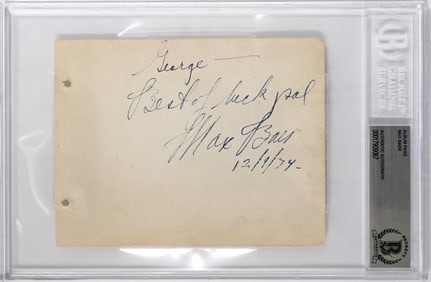 George —
Best of luck pal
Max Baer
12/9/34-
ALBUM PAGE
MAX BAER
AUTHENTIC AUTOGRAPH
BECKETT